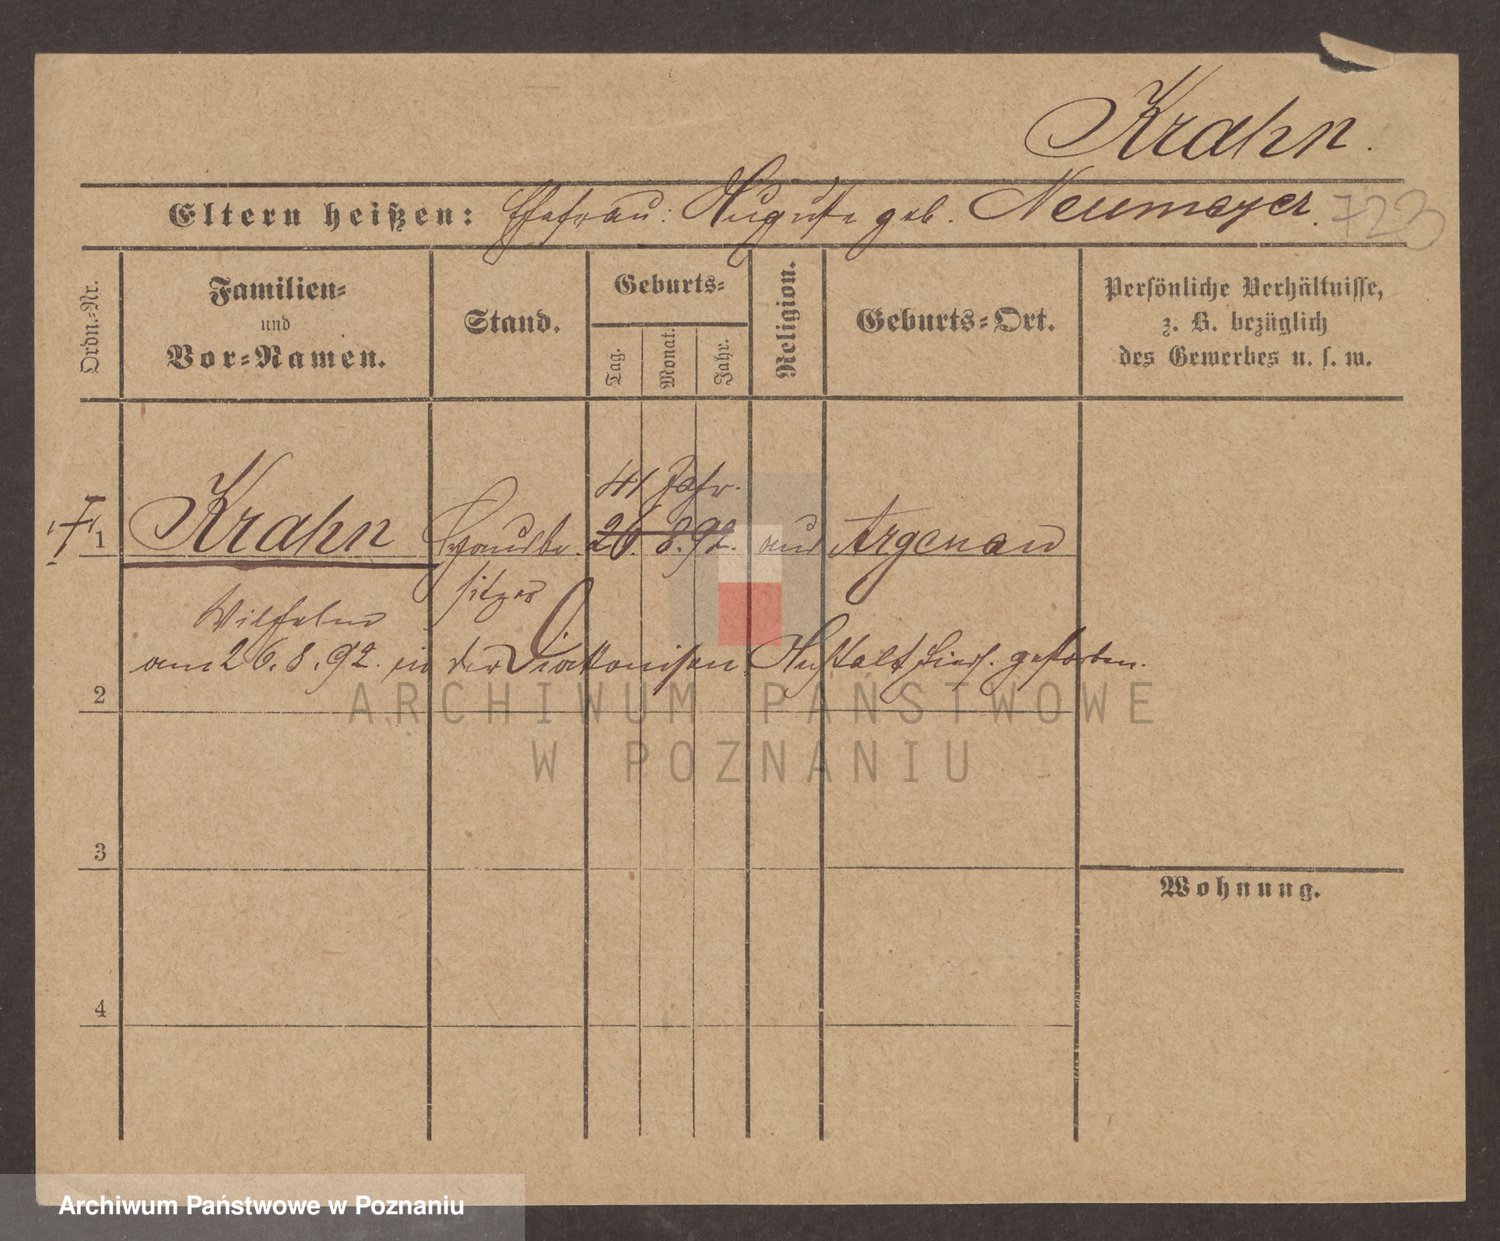 Krahn.
Eltern heißen: Ehefrau: Auguste geb. Neumeyer. 723
Ordn.-Nr.
Familien- und Vor-Namen.
Stand.
Geburts-
Tag.
Monat.
Jahr.
Religion.
Geburts-Ort.
Persönliche Verhältnisse, z. B. bezüglich des Gewerbes u. s. w.
41 Jahr.
1 Krahn Hausbe- 26. 8. 92. aus Argenau
sitzer
Wilhelm
am 26. 8. 92. in der Diakonissen Anstalt hies. gestorben.
2
ARCHIWUM PAŃSTWOWE
W POZNANIU
3
Wohnung.
4
Archiwum Państwowe w Poznaniu